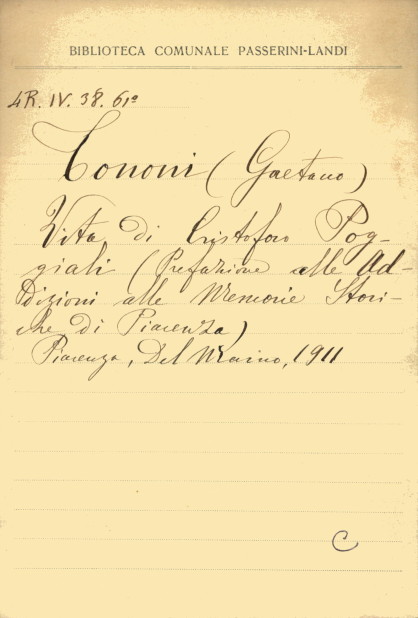 BIBLIOTECA COMUNALE PASSERINI-LANDI
4R. IV. 38. 61º
Tononi (Gaetano)
Vita di Cristoforo Pog-
giali (Prefazione alle Ad-
dizioni alle Memorie Stori-
che di Piacenza)
Piacenza, Del Maino, 1911
C